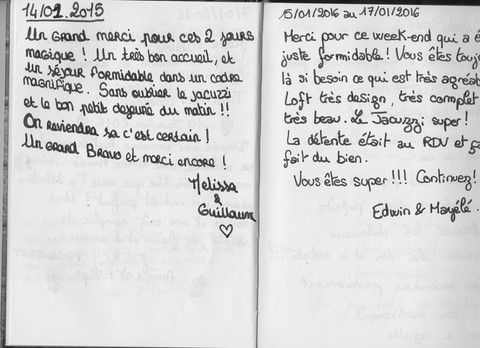 14/01.2015
Un Grand merci pour ces 2 jours
magique ! Un très bon accueil, et
un séjour formidable dans un cadre
magnifique. Sans oublier le jacuzzi
et le bon petit dejeuné du matin !!
On reviendra sa c'est certain !
Un Grand Bravo et merci encore !
Melissa
&
Guillaume
15/01/2016 au 17/01/2016
Merci pour ce week-end qui a é
juste formidable! Vous êtes toujo
là si besoin ce qui est très agréab
Loft très design, très complet
très beau. Le Jacuzzi super!
La détente était au RDV et ça
fait du bien.
Vous êtes super!!! Continuez!
Edwin & Mayélé.